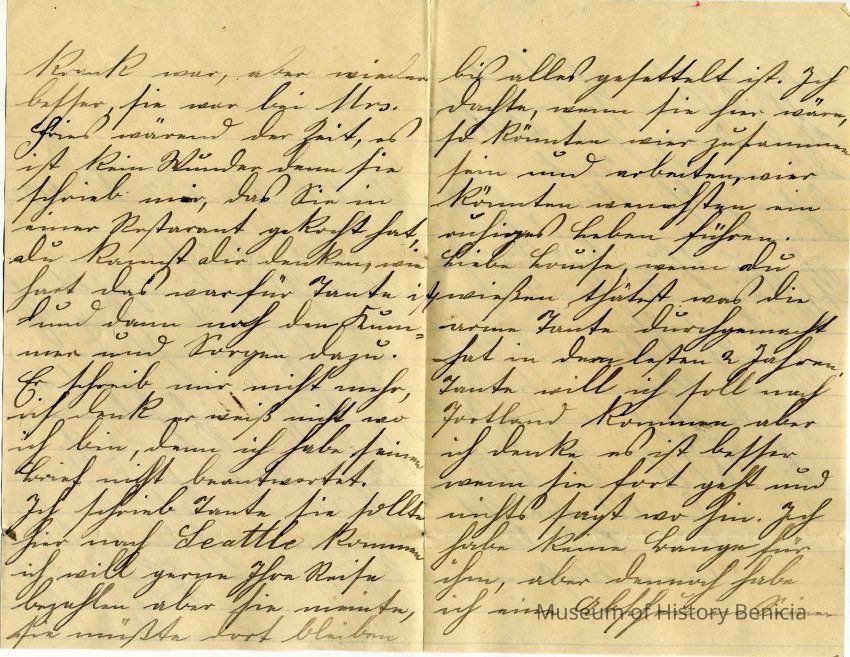 krank war, aber wieder
besser, sie war bei Mrs.
Fries wärend der Zeit, es
ist kein Wunder denn sie
schrieb mir, das Sie in
einer Restarant gekocht hat,
du kannst dir denken, wie
hart das war für Tante ist
und dann noch den Kum-
mer und Sorgen dazu.
Er schreib mir nicht mehr,
ich denk er weiß nicht wo
ich bin, denn ich habe seinen
Brief nicht beantwortet.
Ich schrieb Tante sie sollte
hier nach Seattle kommen
ich will gerne Ihre Reise
bezahlen aber sie meinte,
sie müßte dort bleiben
bis alles gesettelt ist. Ich
dachte, wenn sie hier wäre,
so könnten wier zusammen
sein und arbeiten, wier
könnten wenichsten ein
ruhiges Leben führen.
Liebe Louise, wenn du
wießen thätest was die
arme Tante durchgemacht
hat in dem lesten 2 Jahren.
Tante will ich soll nach
Portland kommen aber
ich denke es ist besser
wenn sie fort geht und
nichts sagt wo hin. Ich
habe keine Bange für
ihm, aber dennoch habe
ich ein
Museum of History Benicia